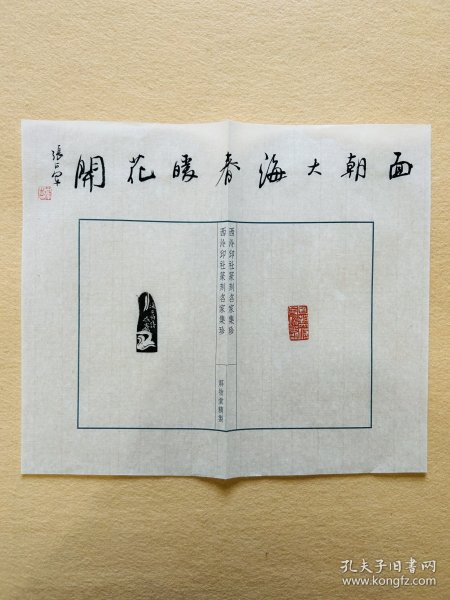 面朝大海春暖花開
張公者
西泠印社篆刻名家集珍
西泠印社篆刻名家集珍
孔夫子旧书网
www.kongfz.com